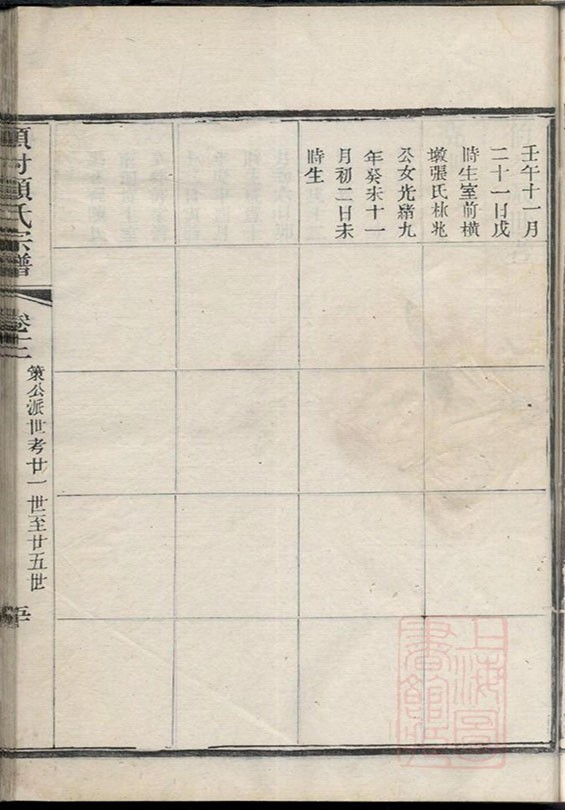 壬午十一月
二十一日戌
時生室前横
墩張氏林兆
公女光緒九
年癸未十一
月初二日未
時生
顧氏宗譜
卷十二
策公派世考廿一世至廿五世
上海圖
書館藏